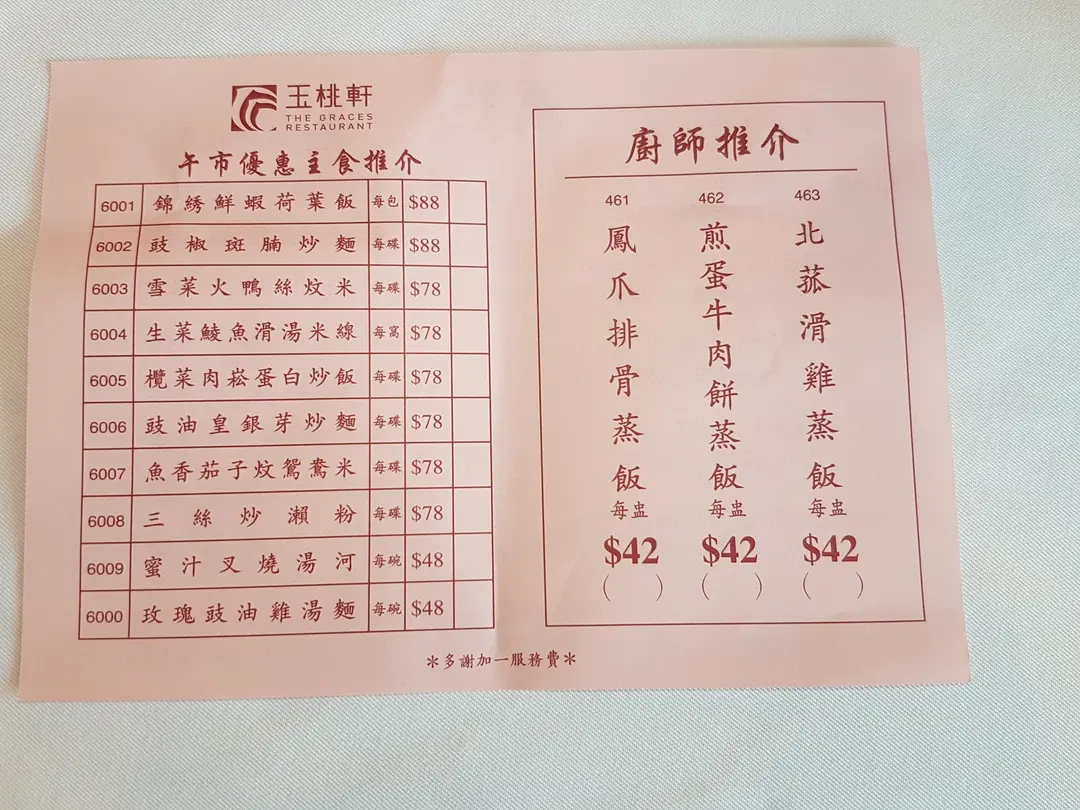 玉桃軒
THE GRACES
RESTAURANT
午市優惠主食推介
6001 錦綉鮮蝦荷葉飯 每包 $88
6002 豉椒斑腩炒麵 每碟 $88
6003 雪菜火鴨絲炆米 每碟 $78
6004 生菜鯪魚滑湯米線 每窩 $78
6005 欖菜肉崧蛋白炒飯 每碟 $78
6006 豉油皇銀芽炒麵 每碟 $78
6007 魚香茄子炆鴛鴦米 每碟 $78
6008 三絲炒瀨粉 每碟 $78
6009 蜜汁叉燒湯河 每碗 $48
6000 玫瑰豉油雞湯麵 每碗 $48
廚師推介
461 鳳爪排骨蒸飯 每盅 $42 ( )
462 煎蛋牛肉餅蒸飯 每盅 $42 ( )
463 北菰滑雞蒸飯 每盅 $42 ( )
＊多謝加一服務費＊